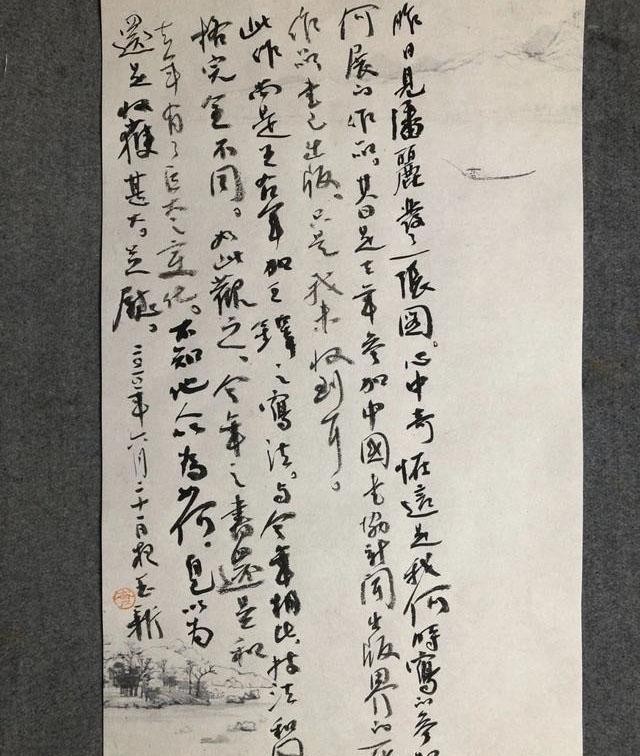 昨日見潘麗發了一張圖。心中奇怪這是我何時寫的參加
何展的作品。其曰是去年參加中國書協新聞出版界的一
作品書已出版。只是我未收到耳。
此作尚是王右軍加王鐸之寫法。與今年相比、技法和風
格完全不同。如此觀之、今年之書還是和
去年有了巨大之變化。不知他人以為如何。自以為
還是收獲甚大。足慰。二〇二〇年六月二十一日